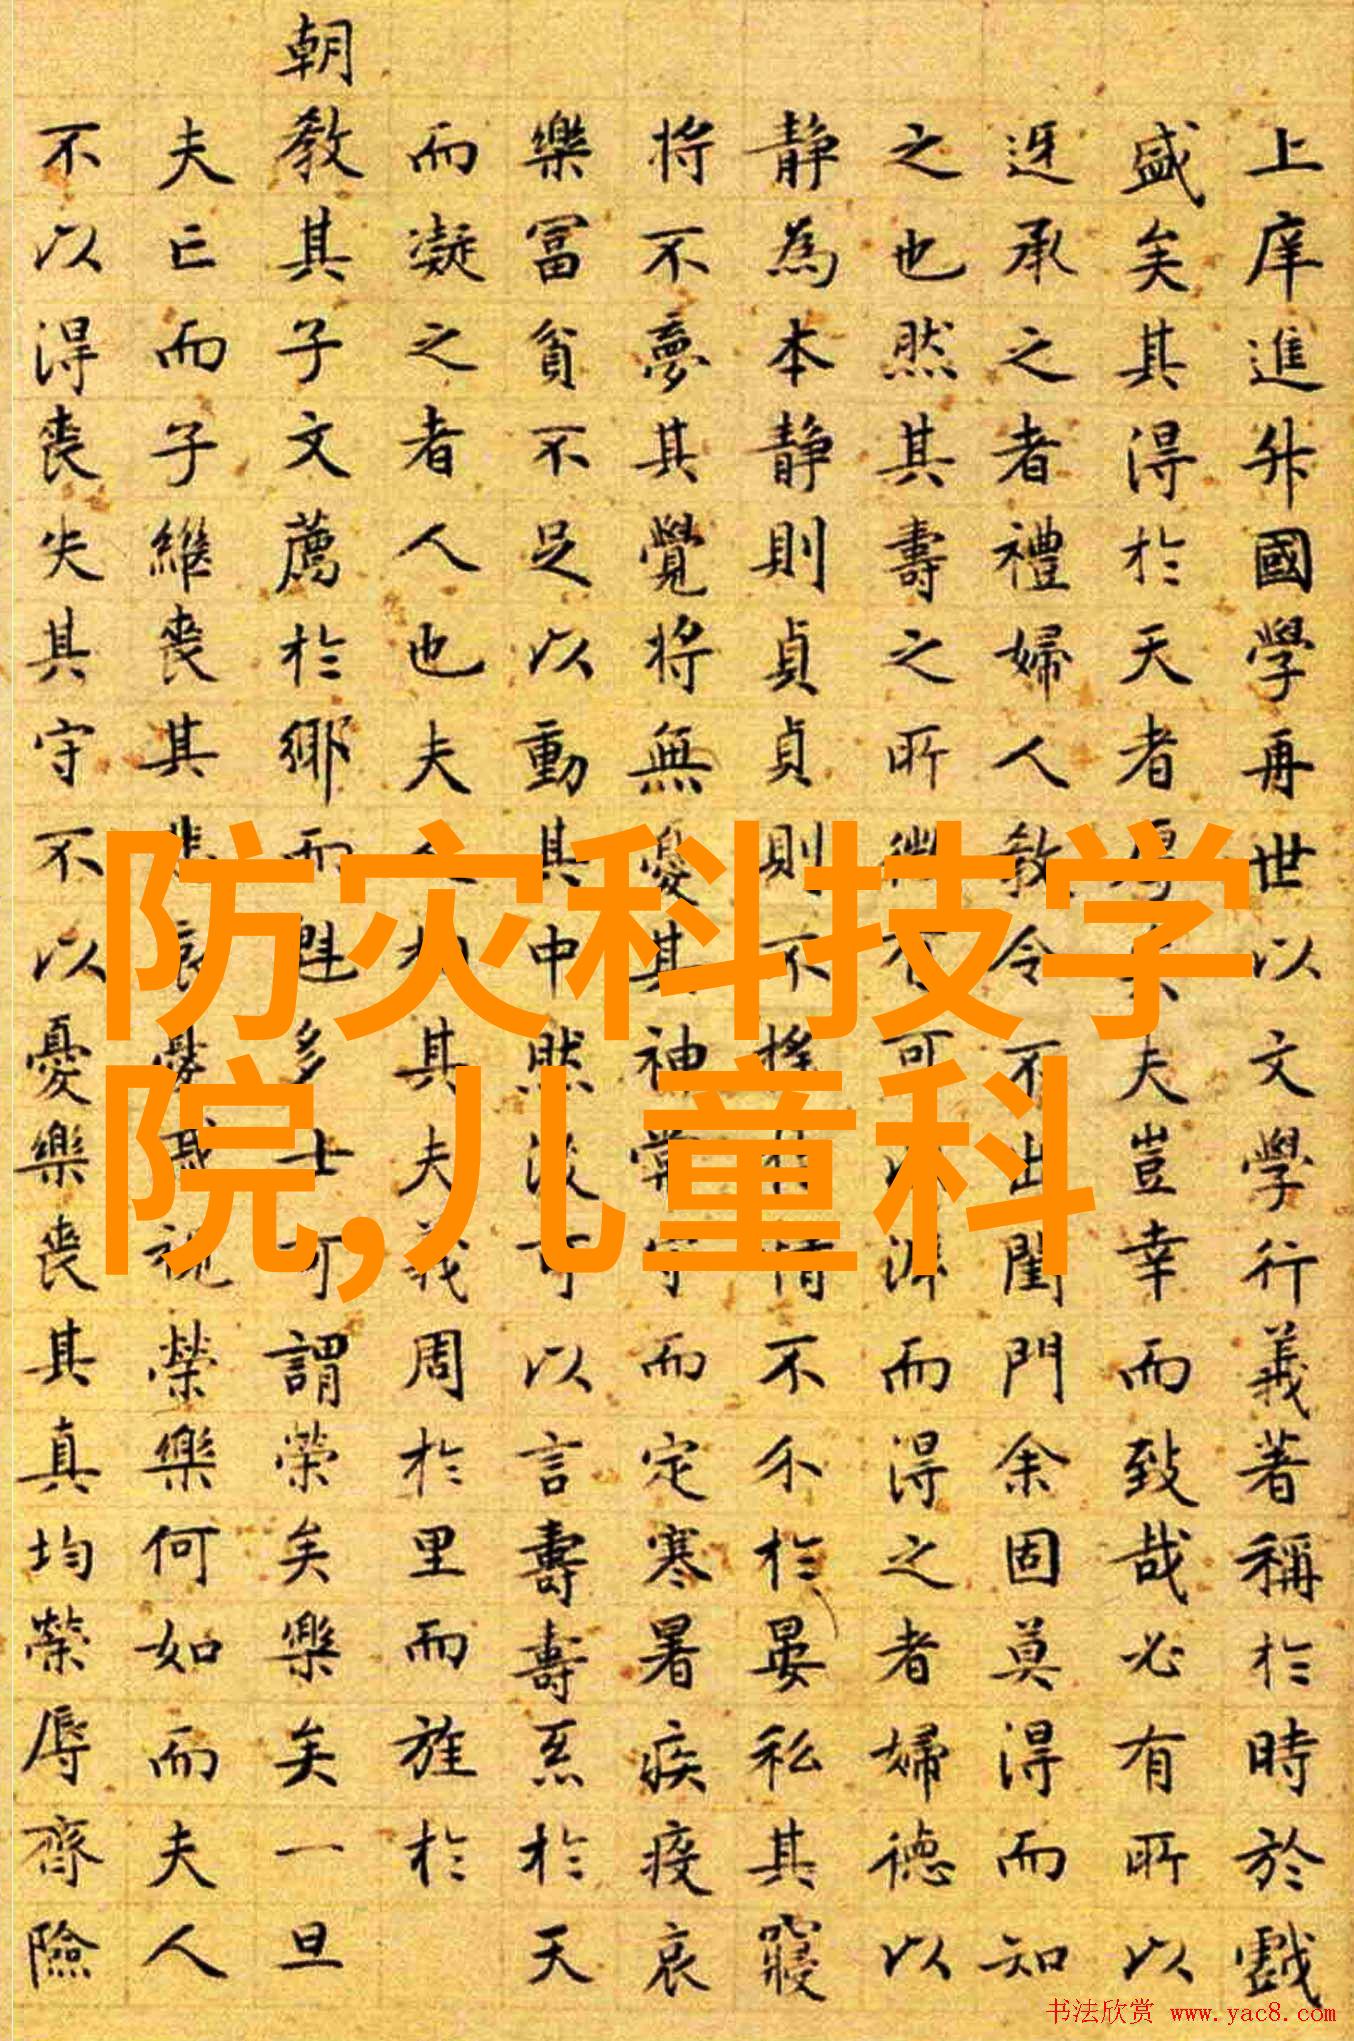 上庠進升國學再世以文學行義著稱於時於戲
盛矣其得於天者夫豈幸而致哉必有所以
迓承之者禮婦人教令不出閨門余固莫得而知
之也然其壽之所可而得之者婦德以
静為本静則貞貞則不情不介於晏私其寢
将不夢其覺将無憂其神常守而定寒暑疾疫哀
樂冨貧不足以動其中然後可以言壽壽烝於天
而凝之者人也夫其夫義周於里而旌於
朝教其子文薦於鄉而魁多士可謂荣矣樂矣一旦
夫亡而子繼喪其悲哀戚視榮樂何如而夫人
不以得喪失其守不以憂樂喪其真均榮辱齊險
防灾科技学
院,儿童科
书法欣赏 www.yac8.com